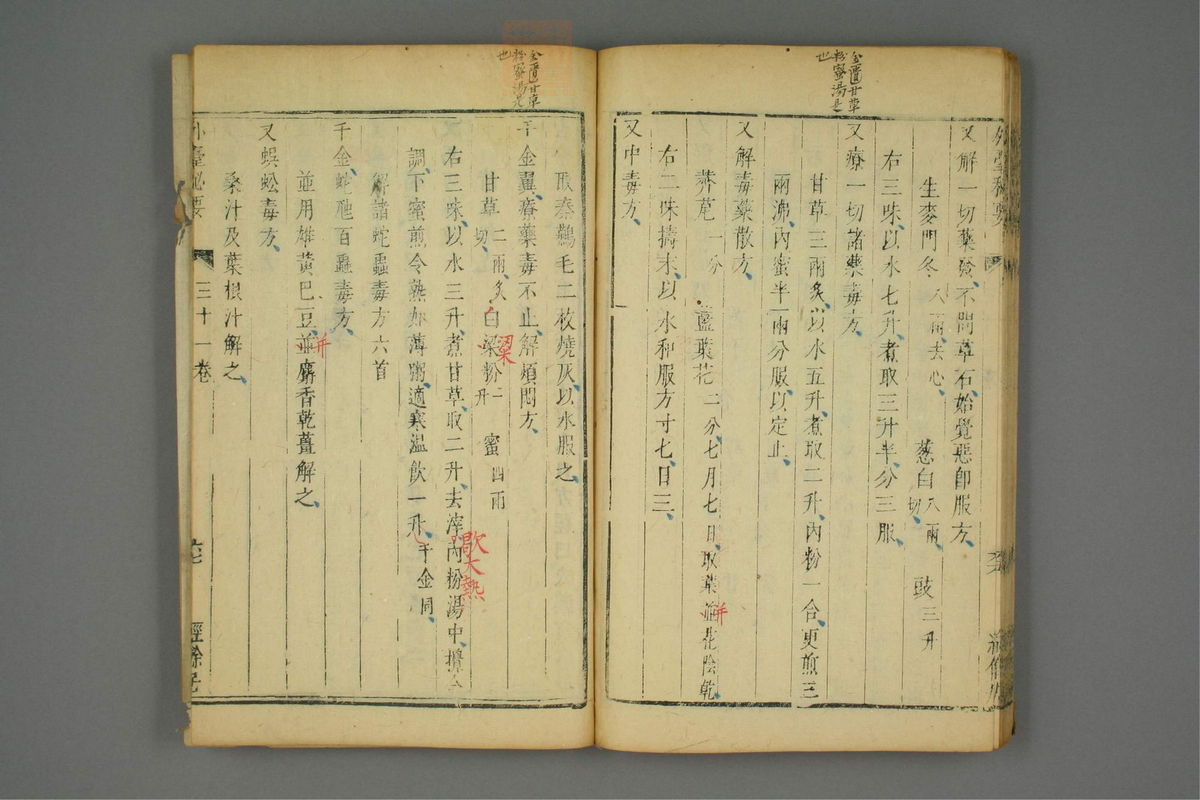 金匱甘草
粉蜜湯是
也
外臺秘要
又解一切藥發不問草石始覺惡即服方
生麥門冬八兩去心 葱白八兩切 豉三升
右三味以水七升煮取三升半分三服
又療一切諸藥毒方
甘草三兩炙以水五升煮取二升內粉一合更煎三
兩沸內蜜半兩分服以定止
又解毒藥散方
薺苨一分 藍葉花二分七月七日取葉並花陰乾
并
右二味擣末以水和服方寸七日三
又中毒方
金匱甘草
粉蜜湯是
也
取秦鷄毛二枚燒灰以水服之
千金翼療藥毒不止解煩悶方
甘草二兩炙切 白梁粉一升 蜜四兩
粱
右三味以水三升煮甘草取二升去滓內粉湯中攪令
歇大熱
調下蜜煎令熟如薄粥適寒温飲一升千金同
解諸蛇蟲毒方六首
千金蛇虺百蟲毒方
並用雄黃巴豆並麝香乾薑解之
并
又蜈蚣毒方
桑汁及葉根汁解之
外臺秘要 三十一卷 經餘居